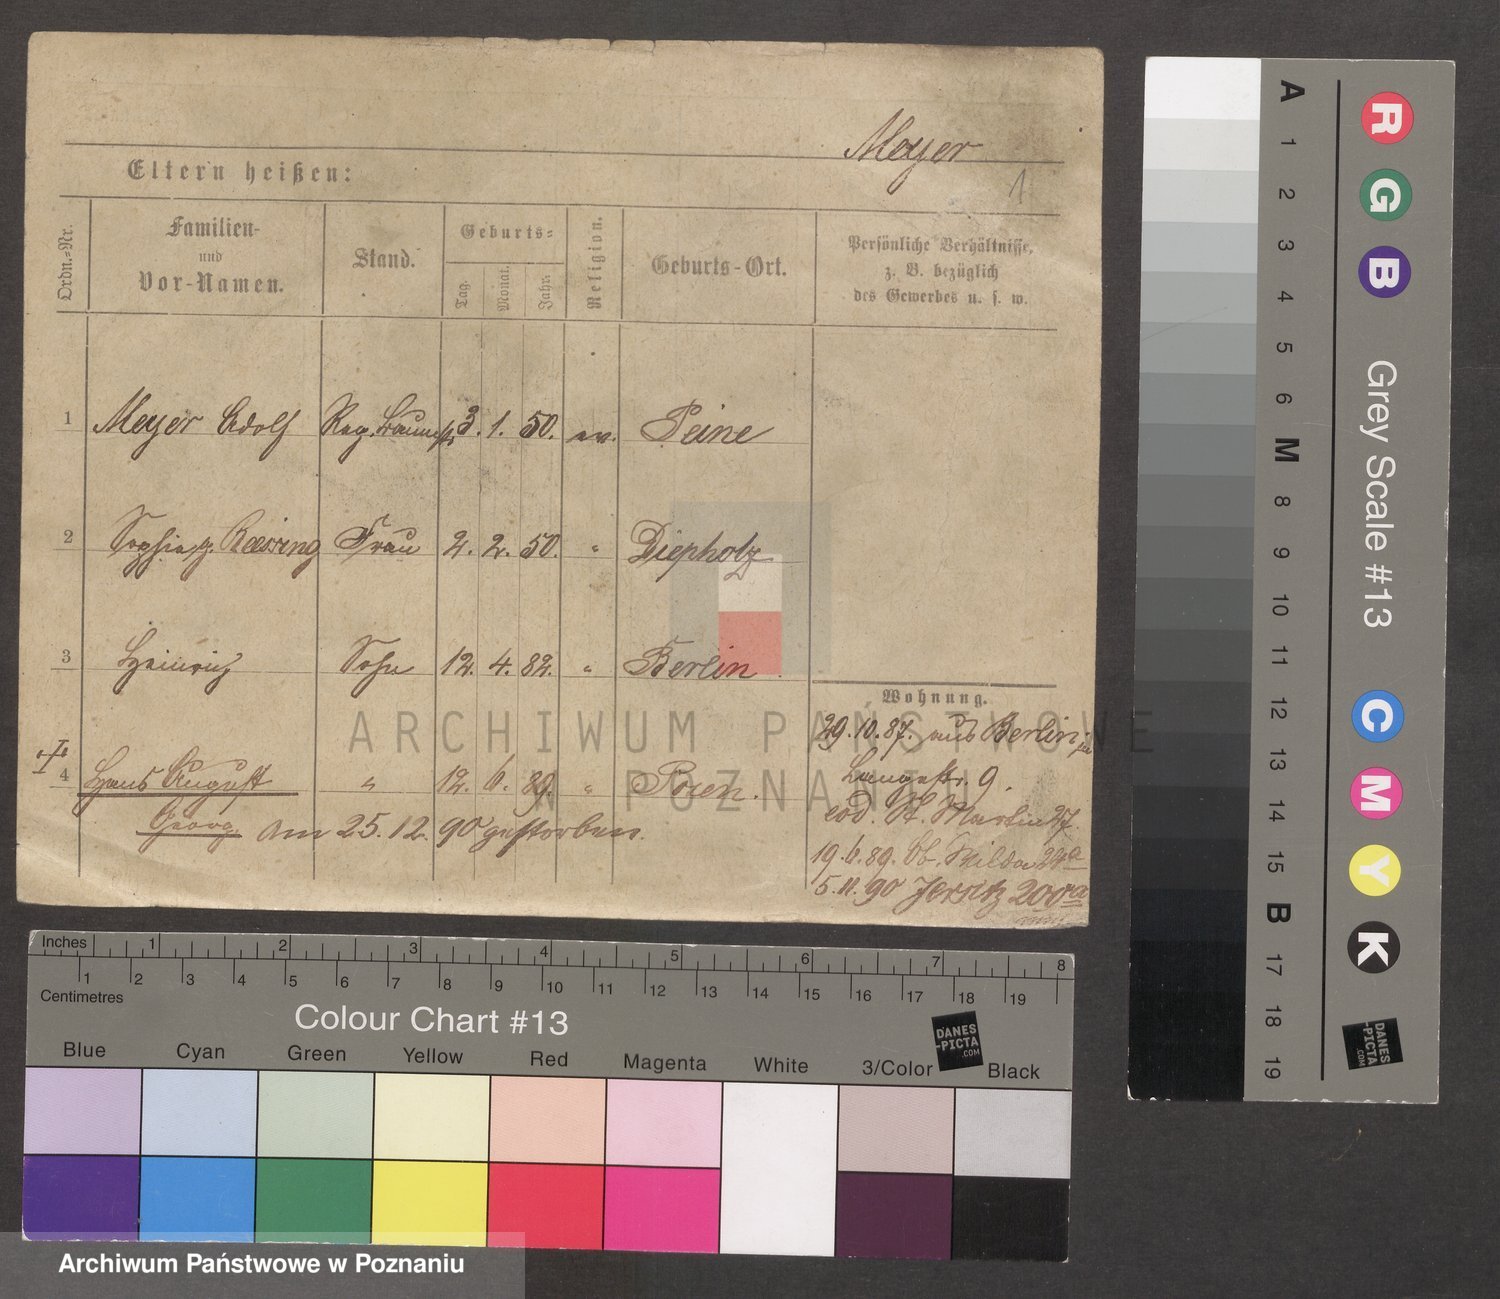 Meyer
1
Eltern heißen:
Ordn.-Nr.
Familien-
und
Vor-Namen.
Stand.
Geburts-
Tag.
Monat.
Jahr.
Religion.
Geburts-Ort.
Persönliche Verhältnisse,
z. B. bezüglich
des Gewerbes u. s. w.
1 Meyer Adolf Reg. Baumstr. 3. 1. 50. ev. Peine
2 Sophie g. Reessing Frau 2. 2. 50. " Diepholz
3 Heinrich Sohn 12. 4. 82. " Berlin
4 Hans August " 12. 6. 89. " Posen.
Georg am 25. 12. 90 gestorben.
Wohnung.
29.10.87. aus Berlin
Langestr. 9.
eod. St. Martin 27.
19.6.89. Ob. Wilda 24a
5.11.90 Jersitz 200a
ARCHIWUM PAŃSTWOWE
W POZNANIU
Inches 1 2 3 4 5 6 7 8
1 2 3 4 5 6 7 8 9 10 11 12 13 14 15 16 17 18 19
Centimetres
Colour Chart #13
DANES
-PICTA
.COM
Blue Cyan Green Yellow Red Magenta White 3/Color Black
Archiwum Państwowe w Poznaniu
A 1 2 3 4 5 6 M 8 9 10 11 12 13 14 15 B 17 18 19
R G B
Grey Scale #13
C M Y K
DANES
-PICTA
.COM